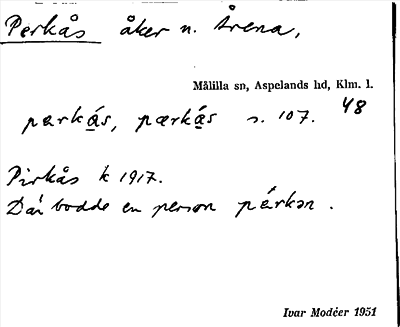 Perkås åker n. Årena,
Målilla sn, Aspelands hd, Klm. l.
pærkǻs, pærkǻs s. 107. 48
Pirkås k 1917.
Där bodde en person pǽrkən.
Ivar Modéer 1951